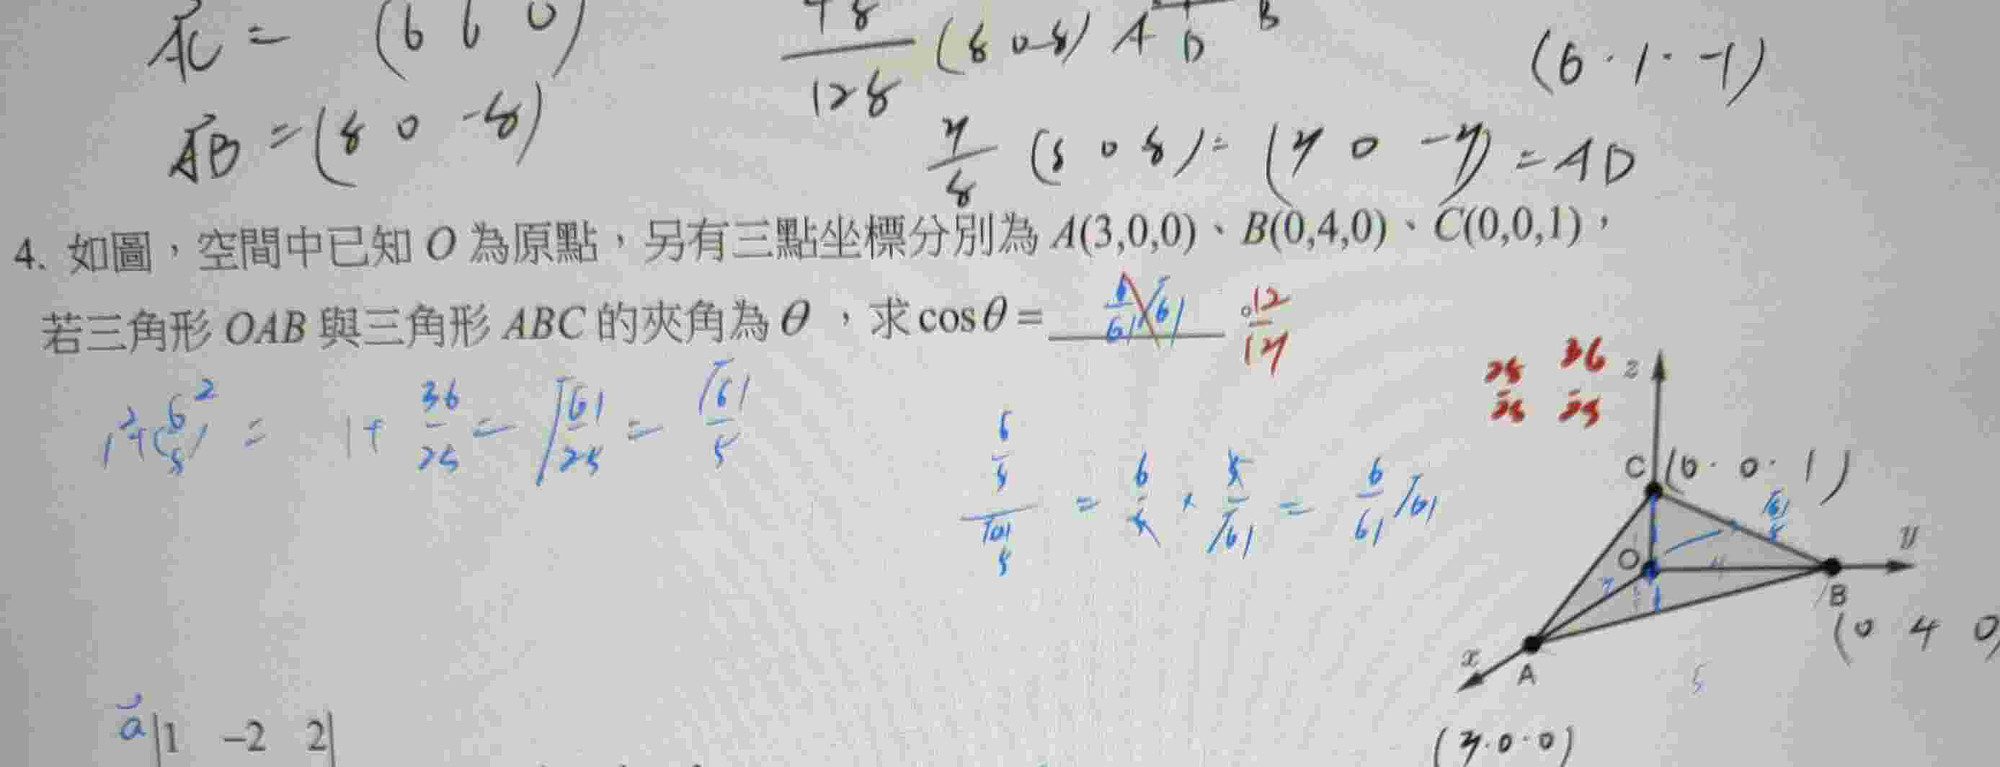 AC = (6 6 0)
AB = (8 0 -8)
128 (8 0 -8) A D B
(6 · 1 · -1)
(8 0 8) = ( 0 - ) = AD
4. 如圖，空間中已知 O 為原點，另有三點坐標分別為 A(3,0,0)、B(0,4,0)、C(0,0,1)，
若三角形 OAB 與三角形 ABC 的夾角為 θ ，求 cosθ = 6/61 √61
1²+(6/5)² = 1+ 36/25 = √61/25 = √61/5
6/5 / √61/5 = 6/5 × 5/√61 = 6/61 √61
25/25 36/25
z
C (0 · 0 · 1)
√61/5
O
y
B
(0 4 0)
x
A
5
(3 · 0 · 0)
a |1 -2 2|